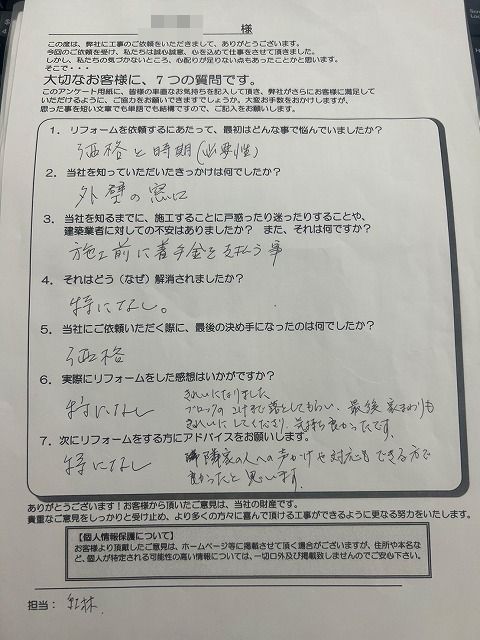 様
この度は、弊社に工事のご依頼をいただきまして、ありがとうございます。
今回のご依頼を受け、私たちは誠心誠意、心を込めて仕事をさせて頂きました。
しかし、私たちの気づかないところ、心配りが足りない点もあったことかと思います。
そこで・・・
大切なお客様に、7つの質問です。
このアンケート用紙に、皆様の率直なお気持ちを記入して頂き、弊社がさらにお客様に満足して
いただけるように、ご協力をお願いできますでしょうか。大変お手数をおかけしますが、
思った事を短い文章でも単語でも結構ですので、ご記入をお願いします。
1. リフォームを依頼するにあたって、最初はどんな事で悩んでいましたか?
価格と時期(必要性)
2. 当社を知っていただいたきっかけは何でしたか?
外壁の窓口
3. 当社を知るまでに、施工することに戸惑ったり迷ったりすることや、
建築業者に対しての不安はありましたか? また、それは何ですか?
施工前に着手金を支払う事
4. それはどう(なぜ)解消されましたか?
特になし。
5. 当社にご依頼いただく際に、最後の決め手になったのは何でしたか?
価格
6. 実際にリフォームをした感想はいかがですか?
特になし
きれいになりました
ブロックのコケまで落としてもらい、最後家まわりも
きれいにしてくださり、気持ち良かったです。
7. 次にリフォームをする方にアドバイスをお願いします。
特になし
隣家の人への声かけや対応もできる方で
良かったと思います。
ありがとうございます!お客様から頂いたご意見は、当社の財産です。
貴重なご意見をしっかりと受け止め、より多くの方々に喜んで頂ける工事ができるように更なる努力をいたします。
【個人情報保護について】
お客様より頂戴したご意見は、ホームページ等に掲載させて頂く場合がございますが、住所や本名な
ど、個人が特定される可能性の高い情報については、一切口外及び掲載致しませんのでご安心下さい。
担当: 紅林